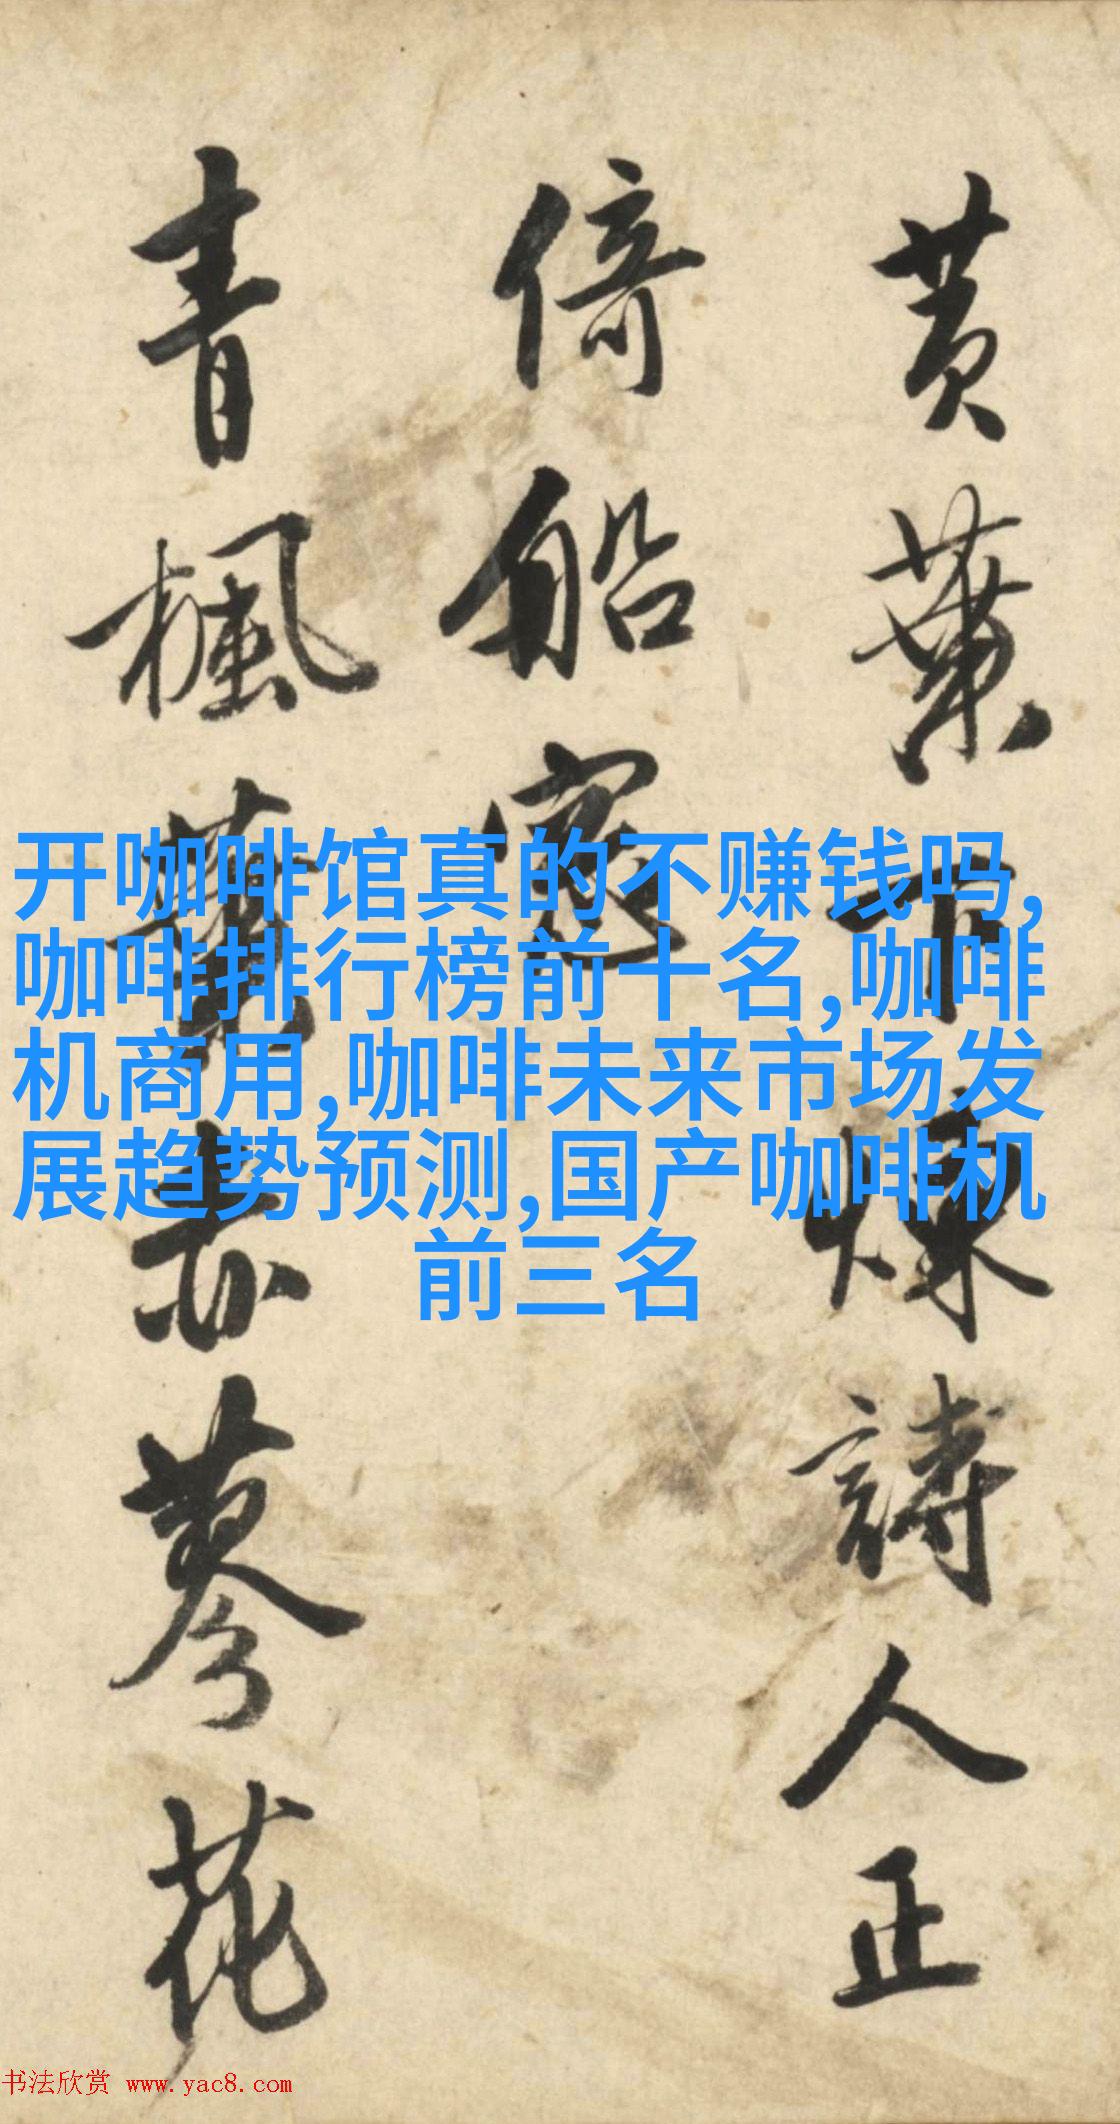 黄葉下詩人正
倚船窓
青楓葉赤蓼花
开咖啡馆真的不赚钱吗,
咖啡排行榜前十名,咖啡
机商用,咖啡未来市场发
展趋势预测,国产咖啡机
前三名
书法欣赏 www.yac8.com